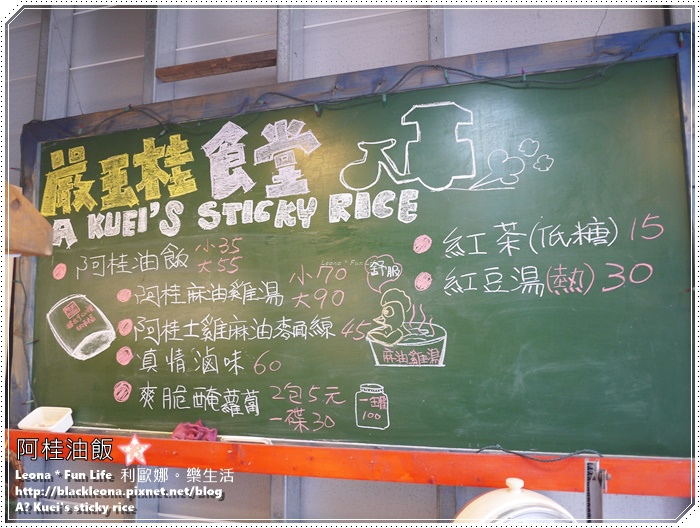 嚴玉桂食堂
A KUEI'S STICKY RICE
阿桂油飯 小35
大55
阿桂麻油雞湯 小70
大90
阿桂土雞麻油麵線 45
真情滷味 60
爽脆醃蘿蔔 2包5元
一碟30
100
舒服
麻油雞湯
紅茶(低糖) 15
紅豆湯(熱) 30
Leona * Fun Life
阿桂油飯
Leona * Fun Life 利歐娜。樂生活
http://blackleona.pixnet.net/blog
A? Kuei's sticky rice